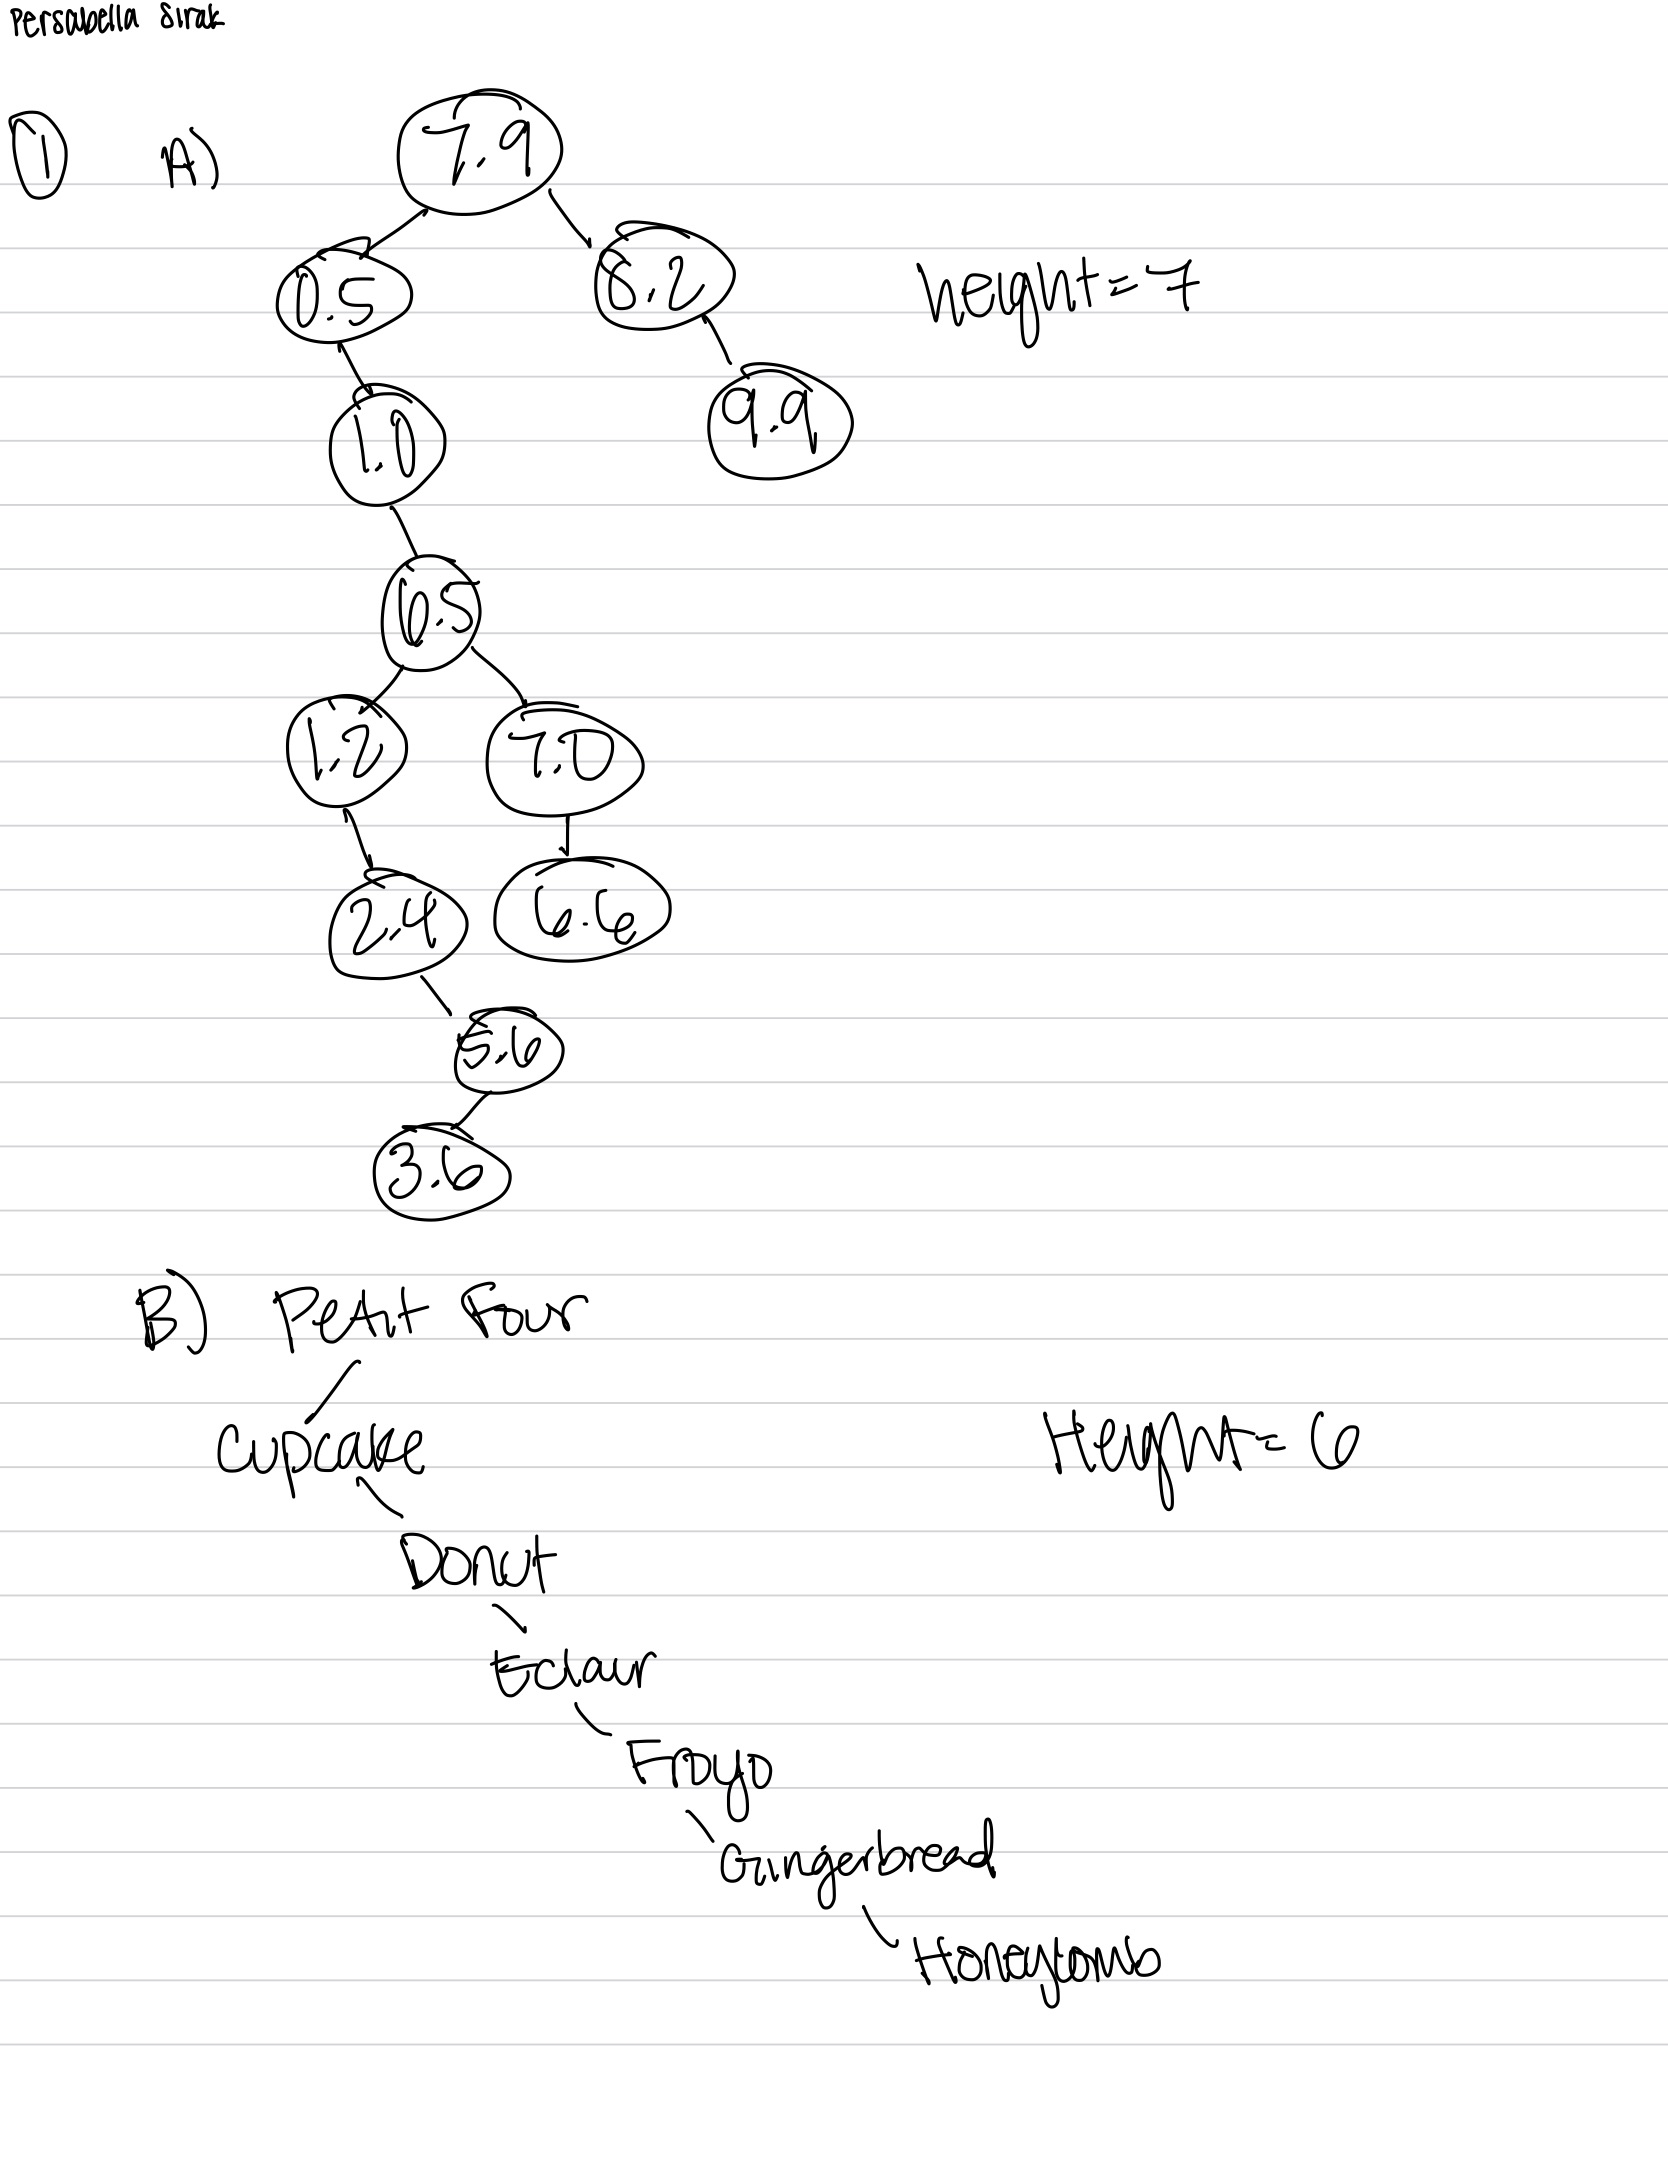 Persabella Sirak
1 A)
7.9
0.5 8.2
height = 7
1.0 9.9
6.5
1.2 7.0
2.4 6.6
5.6
3.6
B) Petit Four
Cupcake
Height = 6
Donut
Eclair
Froyo
Gingerbread
Honeycomb